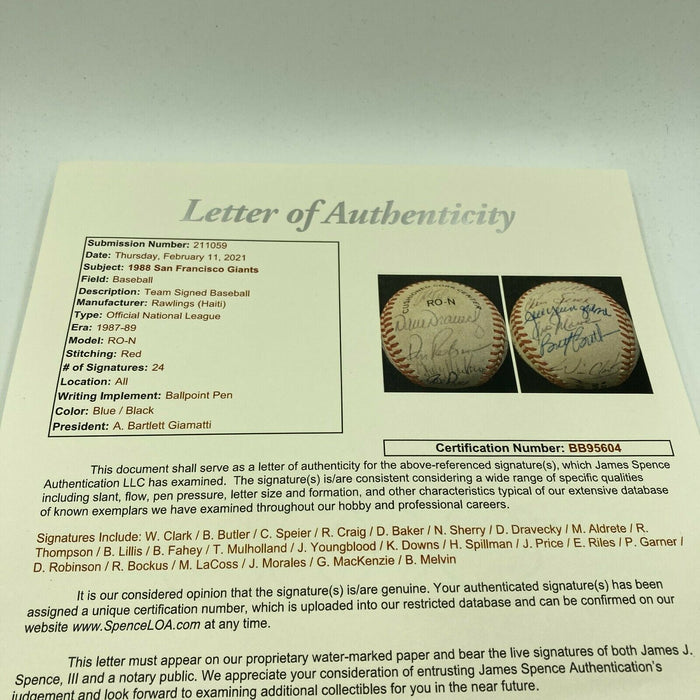 Letter of Authenticity
Submission Number: 211059
Date: Thursday, February 11, 2021
Subject: 1988 San Francisco Giants
Field: Baseball
Description: Team Signed Baseball
Manufacturer: Rawlings (Haiti)
Type: Official National League
Era: 1987-89
Model: RO-N
Stitching: Red
# of Signatures: 24
Location: All
Writing Implement: Ballpoint Pen
Color: Blue / Black
President: A. Bartlett Giamatti
RO-N
Certification Number: BB95604
This document shall serve as a letter of authenticity for the above-referenced signature(s), which James Spence
Authentication LLC has examined. The signature(s) is/are consistent considering a wide range of specific qualities
including slant, flow, pen pressure, letter size and formation, and other characteristics typical of our extensive database
of known exemplars we have examined throughout our hobby and professional careers.
Signatures Include: W. Clark / B. Butler / C. Speier / R. Craig / D. Baker / N. Sherry / D. Dravecky / M. Aldrete / R.
Thompson / B. Lillis / B. Fahey / T. Mulholland / J. Youngblood / K. Downs / H. Spillman / J. Price / E. Riles / P. Garner /
D. Robinson / R. Bockus / M. LaCoss / J. Morales / G. MacKenzie / B. Melvin
It is our considered opinion that the signature(s) is/are genuine. Your authenticated signature(s) has been
assigned a unique certification number, which is uploaded into our restricted database and can be confirmed on our
website www.SpenceLOA.com at any time.
This letter must appear on our proprietary water-marked paper and bear the live signatures of both James J.
Spence, III and a notary public. We appreciate your consideration of entrusting James Spence Authentication's
judgement and look forward to examining additional collectibles for you in the near future.